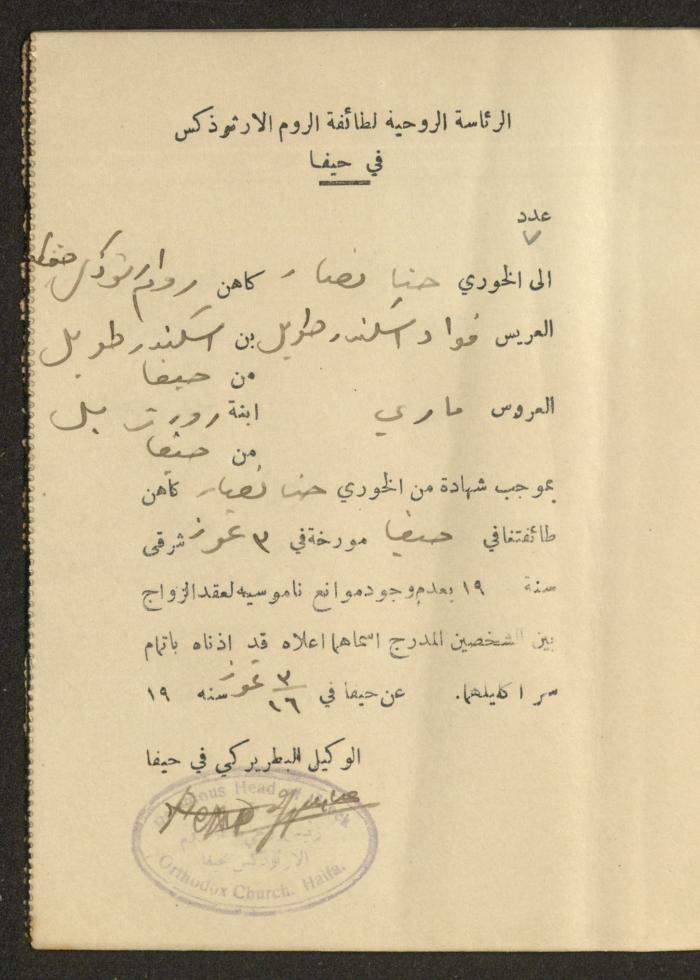 الرئاسة الروحية لطائفة الروم الارثوذكس
في حيفا
عدد
٧
الى الخوري حنا نصار كاهن روم ارثوذكس
العريس فواد اسكندر طويل بن اسكندر طويل
من حيفا
العروس ماري ابنة
من حيفا
بموجب شهادة من الخوري حنا نصار كاهن
طائفتنا في حيفا مورخة في ٣ تموز شرقي
سنة ١٩ بعدم وجود موانع ناموسيه لعقد الزواج
بين الشخصين المدرج اسماهما اعلاه قد اذناه باتمام
سر اكليلهما. عن حيفا في ٣/١٦ تموز سنه ١٩
الوكيل البطريركي في حيفا
Religious Head Greek
الارثوذكس بحيفا
Orthodox Church. Haifa.